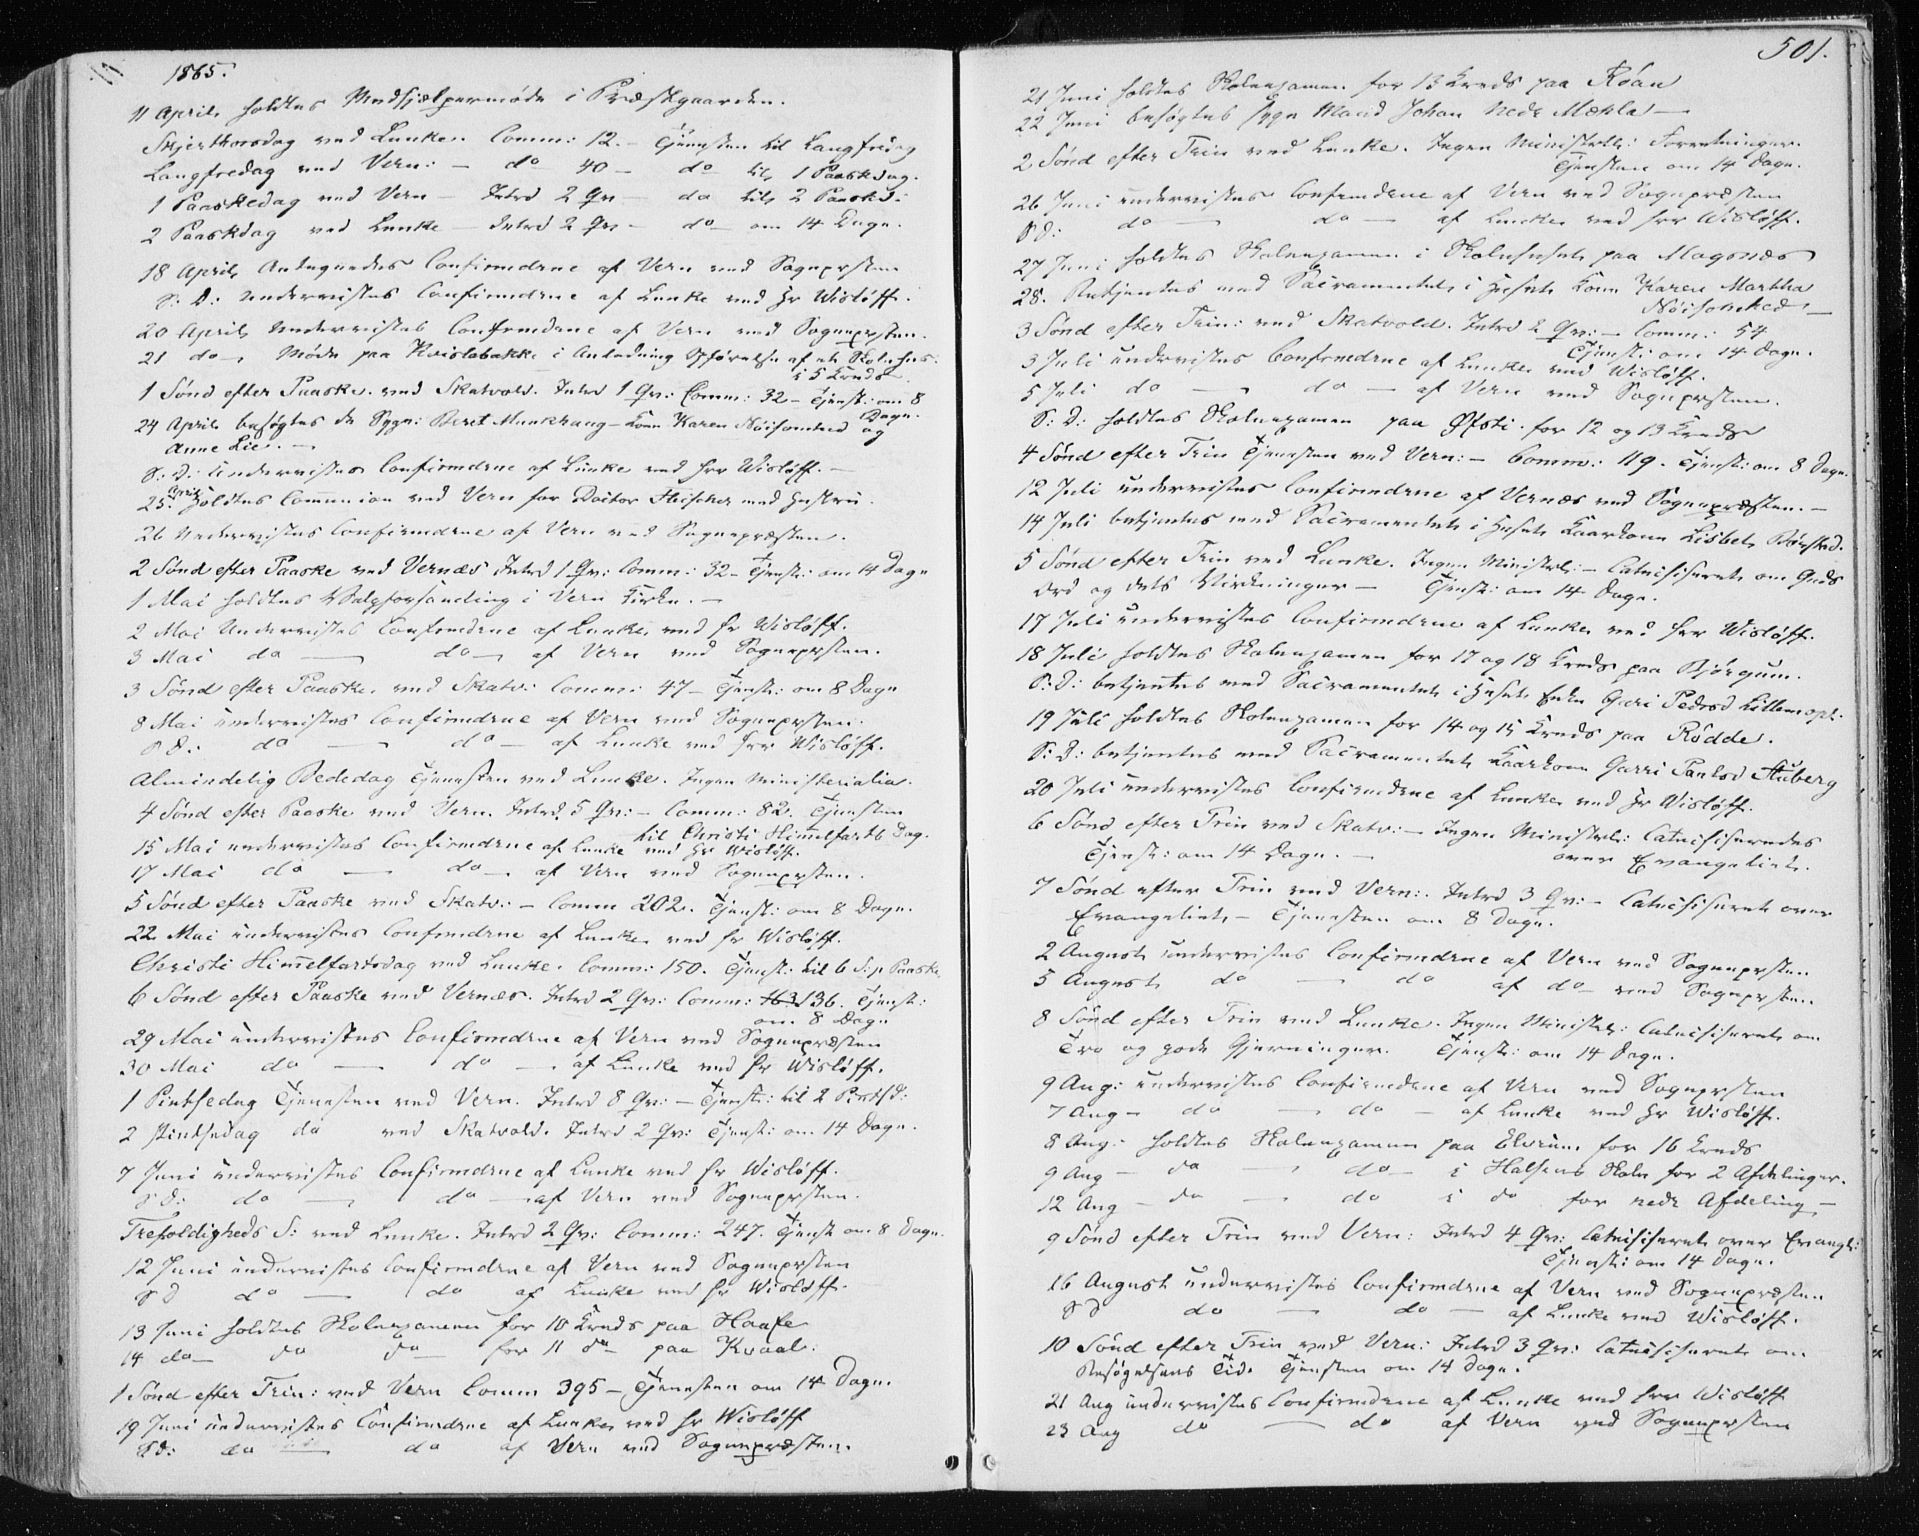 1865.
11 April holdtes Medhjælpermøde i Præstgaarden.
Skjerthorsdag ved Lunke. Comm: 12. - Tjenesten til Langfredag
Langfredag ved Vern: - do 40 - do til 1 Paaskdag.
1 Paaskedag ved Vern - Introd 2 Qv - do til 2 Paaskd:
2 Paaskdag ved Lunke - Introd 2 Qv - do om 14 Dage.
18 April Antegnedes Confirmdrne af Vern ved Sogneprsten
S: D: Undervistes Confirmdrne af Lunke ved Hr Wisløff.
20 April Undervistes Confirmdrne af Vern ved Sogneprsten.
21 do - Møde paa Kvislabakke i Anledning Opførelse af et Skolehus
i 5 Kreds.
1 Sønd efter Paaske ved Skatvold. Introd 1 Qv: Comm: 32 - Tjenst: om 8
Dage.
24 April besøgtes de Syge: Beret Munkhaug - Kone Karen Nøisomhed og
Anne Lie. -
S. D: Undervistes Confirmdrne af Lunke ved Hrr Wisløff. -
25 April holdtes Communion ved Vern for Doctor Fleischer med Hustru.
26 Undervistes Confirmdrne af Vern ved Sognepræsten.
2 Sønd efter Paaske ved Vernæs Introd 1 Qv: Comm: 32 - Tjenst: om 14 Dage
1 Mai holdtes Valgforsamling i Vern Kirke. -
2 Mai Undervistes Confirmdrne af Lunke ved Hr Wisløff.
3 Mai do - do - af Vern ved Sogneprsten.
3 Sønd efter Paaske ved Skatv: Comm: 47 - Tjenst: om 8 Dage
8 Mai undervistes Confirmdrne af Vern ved Sogneprsten.
S D.: do - do - af Lunke ved Hrr Wisløff.
Almindelig Bededag Tjenesten ved Lunke. Ingen Ministerialia.
4 Sønd efter Paaske ved Vern. Introd. 5 Qv: - Comm: 82. Tjenesten
til Christi Himmelfartb Dag.
15 Mai undervistes Confirmdrne af Lunke ved Hr Wisløff.
17 Mai do - do - af Vern ved Sogneprsten.
5 Sønd efter Paaske ved Skatv: - Comm 202. Tjenst: om 8 Dage.
22 Mai undervistes Confirmdrne af Lunke ved Hr Wisløff.
Christi Himmelfartsdag ved Lunke. Comm: 150. Tjenst: til 6 S: p Paaske
6 Sønd efter Paaske ved Vernæs. Introd 2 Qv: Comm: 163 136. Tjenst:
om 8 Dage
29 Mai undervistes Confirmdrne af Vern ved Sognepræsten
30 Mai do - do - af Lunke ved Hr Wisløff.
1 Pintsedag Tjenesten ved Vern. Introd 8 Qv: - Tjenst: til 2 Pintsd:
2 Pintsedag do ved Skatvold. Introd 2 Qv: Tjenst: om 14 Dage.
7 Juni undervistes Confirmdrne af Lunke ved Hr Wisløff.
S D: do - do - af Vern ved Sogneprsten.
Trefoldigheds S: ved Lunke. Introd 2 Qv: Comm: 247. Tjenst om 8 Dage.
12 Juni undervistes Confirmdrne af Vern ved Sogneprsten
S D do - do af Lunke ved Hr Wisløff.
13 Juni holdtes Skolexamen for 10 Kreds paa Haafe
14 do - do do - for 11 do - paa Kvaal.
1 Sønd efter Trin: ved Vern Comm 395 - Tjenesten om 14 Dage.
19 Juni undervistes Confirmdrne af Lunke ved Hr Wisløff
S D: do - do af Vern ved Sognepræsten.
501.
21 Juni holdtes Skolexamen for 13 Kreds paa Røan
22 Juni besøgtes syge Mand Johan Nedr Mæhla -
2 Sønd efter Trin ved Lunke. Ingen Ministrle: Forretninger.
Tjenesten om 14 Dage.
26 Juni undervistes Confirmdrne af Vern ved Sognepræsten
S D: do - do - af Lunke ved Hrr Wisløff.
27 Juni holdtes Skolexamen i Skolehuset paa Mogsnæs
28. Betjentes med Sacramentet i Huset Kone Karen Martha
Nøisomhed -
3 Sønd efter Trin: ved Skatvold. Introd 2 Qv: - Comm: 54
Tjenst: om 14 Dage.
3 Juli undervistes Confirmdrne af Lunke ved Wisløff.
5 Juli do - do - af Vern ved Sogneprsten.
S: D: holdtes Skolexamen paa Øfsti. for 12 og 13 Kreds
4 Sønd efter Trin Tjenesten ved Vern: - Comm: 119. Tjenst: om 8 Dage.
12 Juli undervistes Confirmdrne af Vernæs ved Sognepræsten. -
14 Juli betjentes med Sacramentet i Huset Kaarkone Lisbet Børstad.
5 Sønd efter Trin ved Lunke. Ingen Ministrle: - Catechiseret om Guds
Ord og dets Virkninger - Tjenst: om 14 Dage.
17 Juli undervistes Confirmdrne af Lunke ved Hrr Wisløff.
18 Juli holdtes Skolexamen for 17 og 18 Kreds paa Bjørgum.
S: D: betjentes med Sacramentet i Huset Enke Guri Pedrsd Lillemopl.
19 Juli holdtes Skolexamen for 14 og 15 Kreds paa Rødde.
S: D: betjentes med Sacramentet Kaarkone Gurri Paulsd Auberg
20 Juli undervistes Confirmdrne af Lunke ved Hr Wisløff.
6 Sønd efter Trin ved Skatv: - Ingen Ministrl: Catechiseredes
Tjenst: om 14 Dage. - over Evangeliet.
7 Sønd efter Trin ved Vern:. Introd 3 Qv: - Catechiseret over
Evangeliet - Tjenesten om 8 Dage.
2 August undervistes Confirmdrne af Vern ved Sogneprsten
5 August do - do af do - ved Sogneprsten
8 Sønd efter Trin ved Lunke. Ingen Ministrl: Catechiseret om
Tro og gode Gjerninger. Tjenst: om 14 Dage.
9 Aug: undervistes Confirmdrne af Vern ved Sogneprsten
7 Aug - do - do - af Lunke ved Hr Wisløff.
8 Aug: holdtes Skolexamen paa Elvrum for 16 Kreds
9 Aug - do - do - i Halsens Skole for 2 Afdelinger.
12 Aug - do - do i do for nedr Afdeling -
9 Sønd efter Trin ved Vern: Introd 4 Qv: Catechiseret over Evangl:
Tjenst: om 14 Dage.
16 August undervistes Confirmdrne af Vern ved Sognepræsten
S D do - do - af Lunke ved Wisløff.
10 Sønd efter Trin ved Vern: Introd 3 Qv: Catechiseret om
Besøgelsens Tid. Tjenesten om 14 Dage.
21 Aug undervistes Confirmdrne af Lunke ved Hrr Wisløff
23 Aug do - do af Vern ved Sogneprsten